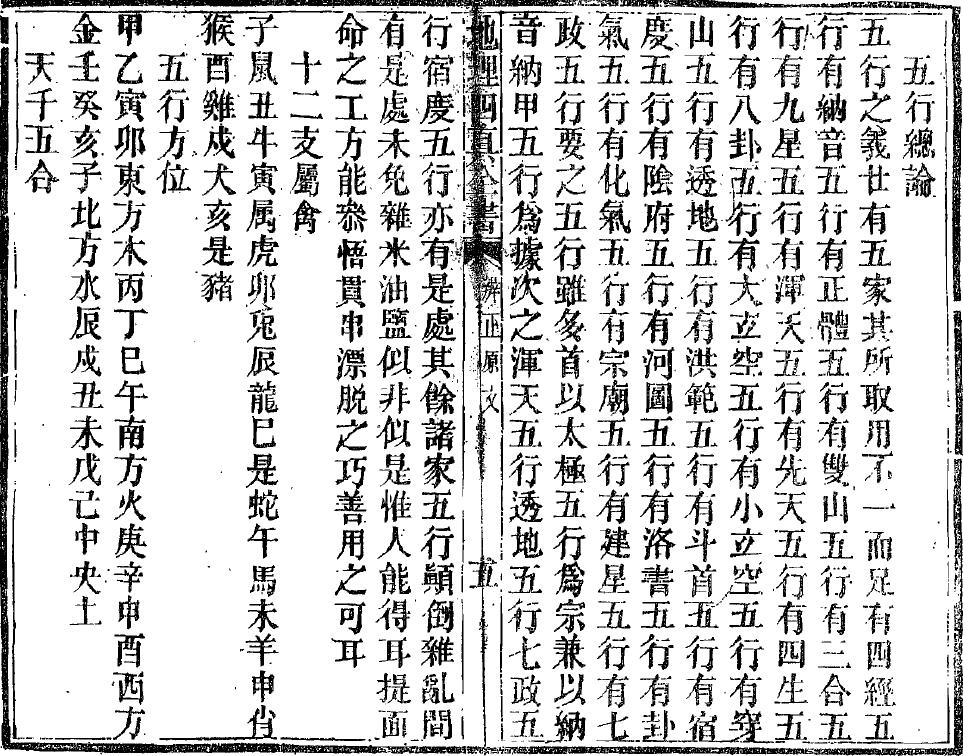 五行總論
五行之義廿有五家其所取用不一而足有四經五
行有納音五行有正體五行有雙山五行有三合五
行有九星五行有渾天五行有先天五行有四生五
行有八卦五行有大立空五行有小立空五行有穿
山五行有透地五行有洪範五行有斗首五行有宿
慶五行有陰府五行有河圖五行有洛書五行有卦
氣五行有化氣五行有宗廟五行有建星五行有七
政五行要之五行雖多首以太極五行爲宗兼以納
音納甲五行爲據次之渾天五行透地五行七政五
地理四 書 辨正原文 五
行宿慶五行亦有是處其餘諸家五行顛倒雜亂間
有是處未免雜米油鹽似非似是惟人能得耳提面
命之工方能叅悟貫串漂脱之巧善用之可耳
十二支屬禽
子鼠丑牛寅属虎卯兎辰龍巳是蛇午馬未羊申肖
猴酉雞戍犬亥是豬
五行方位
甲乙寅卯東方木丙丁巳午南方火庚辛申酉西方
金壬癸亥子北方水辰戍丑未戊己中央土
天千五合